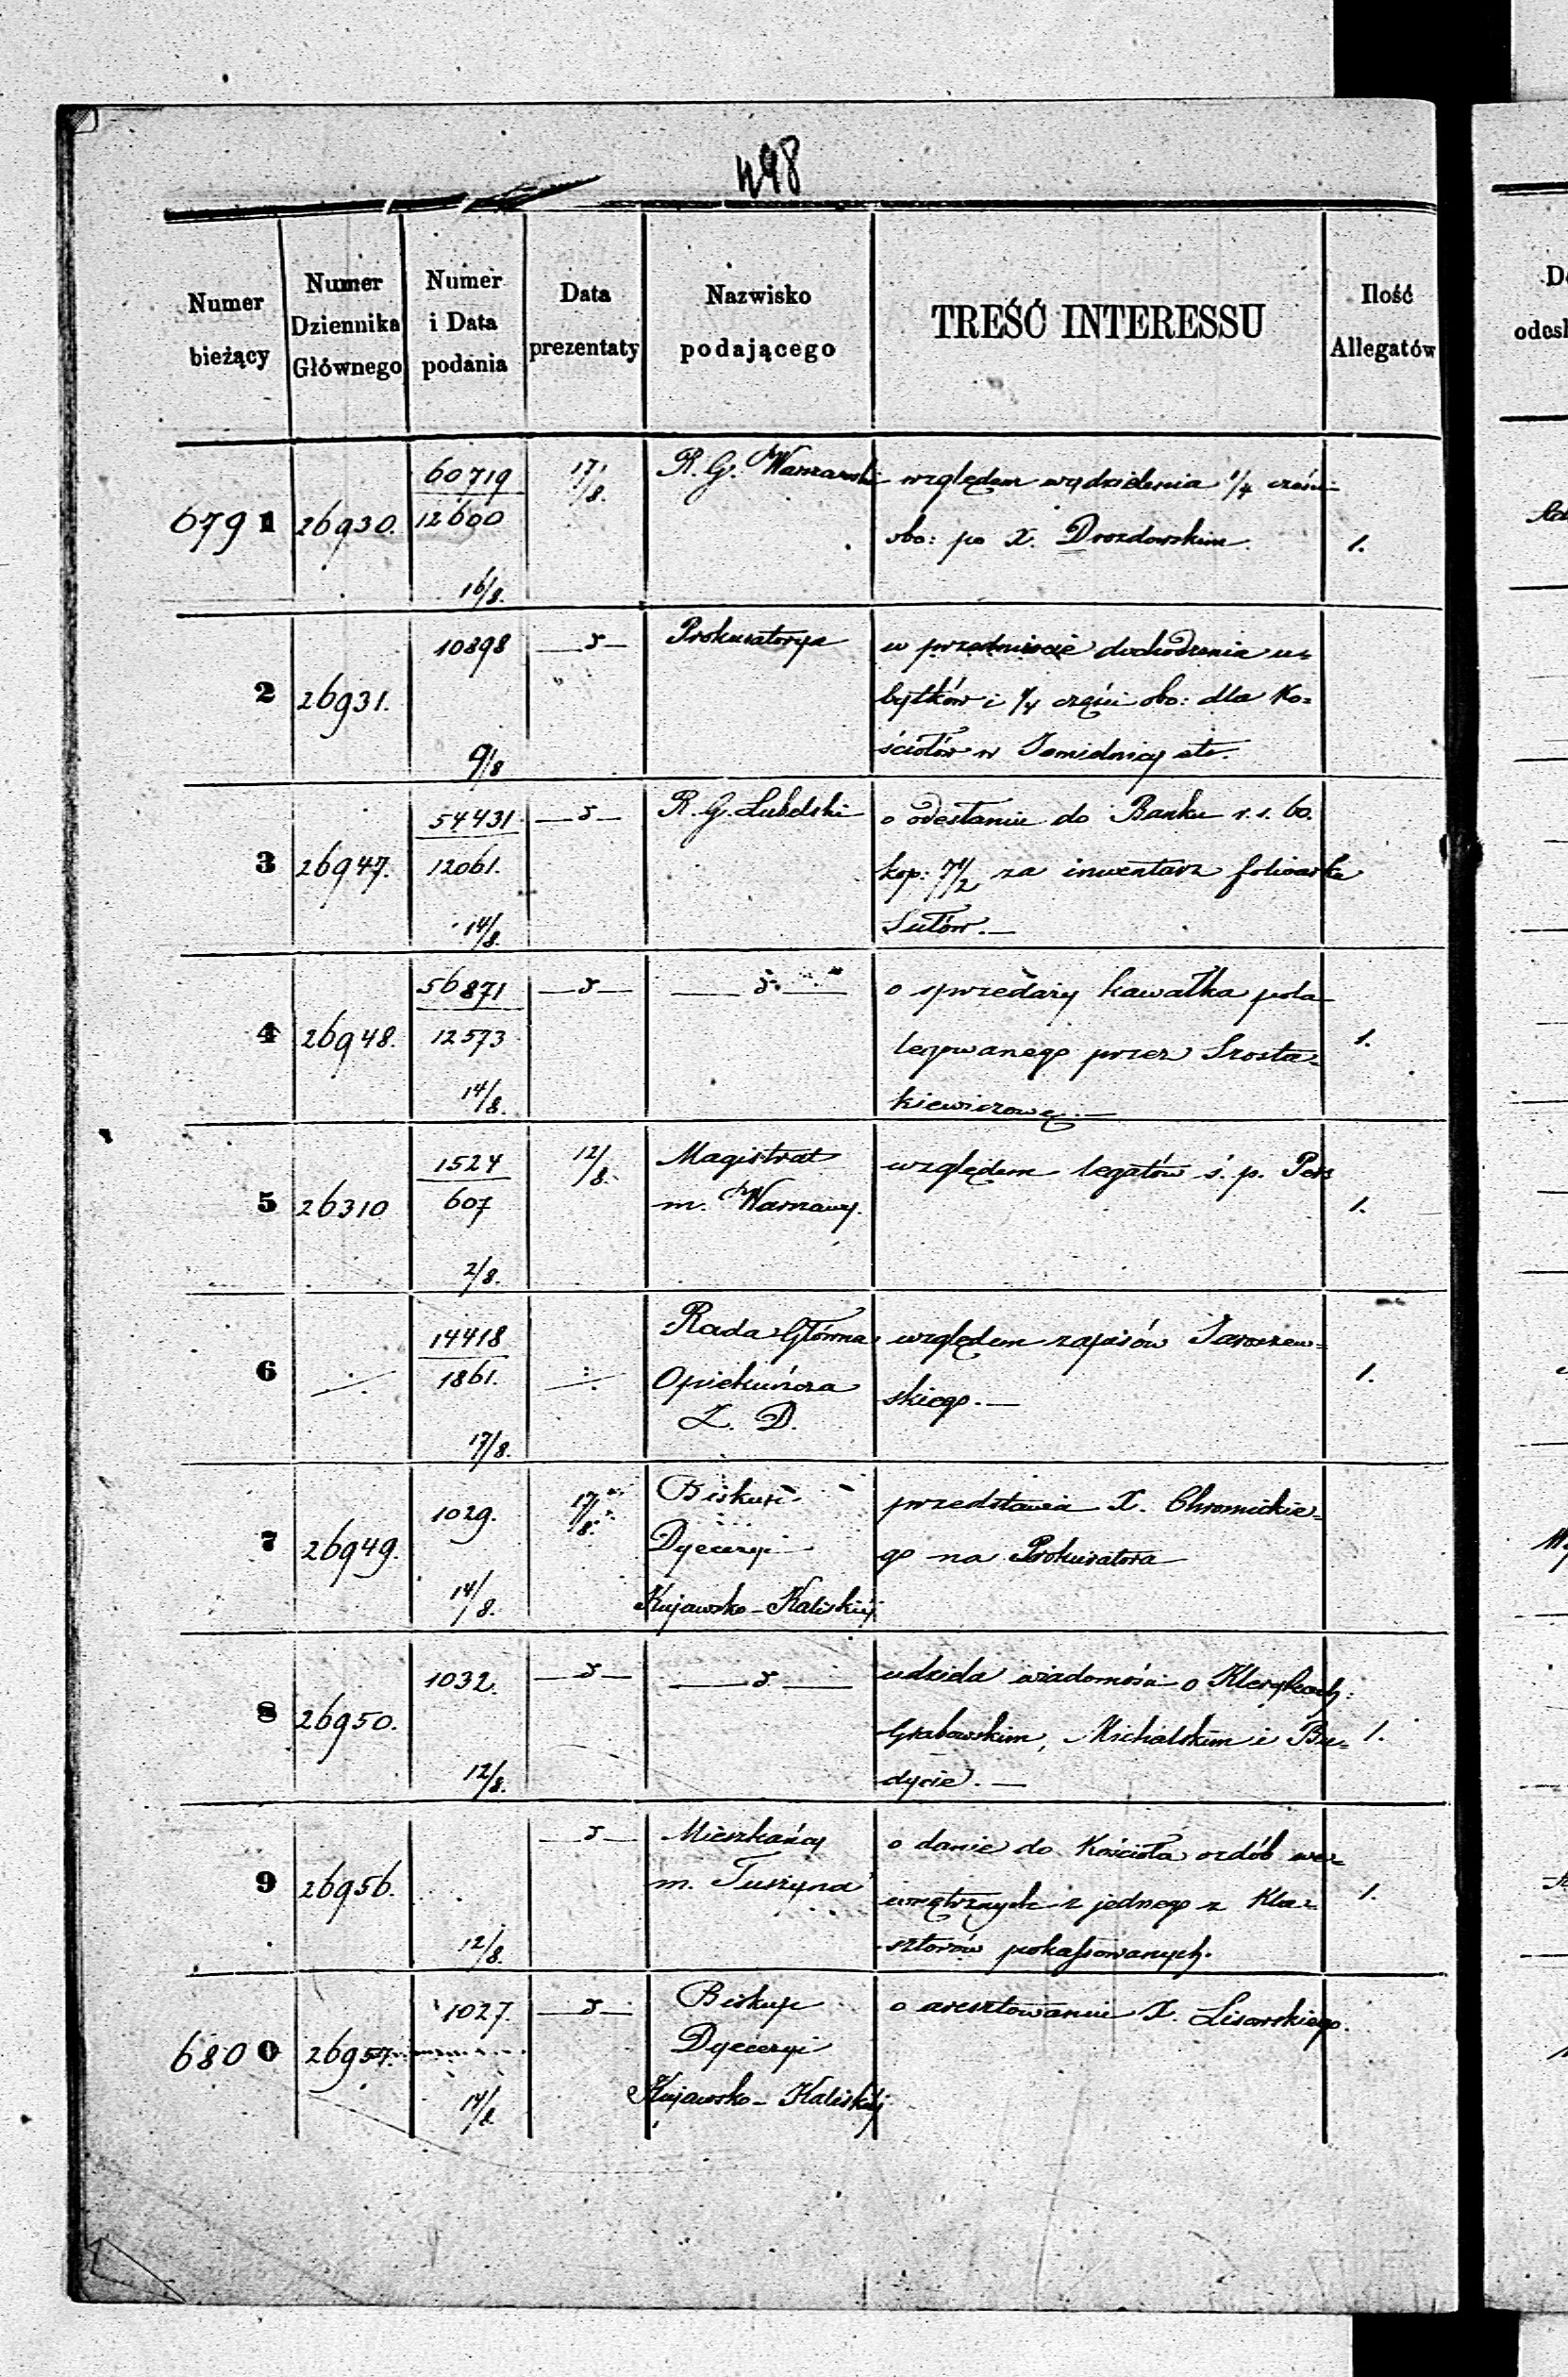 498
Numer bieżący
Numer Dziennika Głównego
Numer i Data podania
Data prezentaty
Nazwisko podającego
TREŚĆ INTERESSU
Ilość Allegatów
6791 26930. 60719 17/8. R. G. Warszawski względem wydzielenia 1/4 części
12600 obo: po X. Drozdowskim. 1.
16/8.
2 26931. 10898 —d— Prokuratorya w przedmiocie dochodzenia u=
bytków i 1/4 części obo: dla Ko=
9/8 ściołów w etc.
3 26947. 54431 —d— R. G. Lubelski o odesłanie do Banku r.s. 60.
12061. kop: 7 1/2 za inwentarz folwarku
14/8. Sułów.—
4 26948. 56871 —d— —d— o sprzedaży kawałka pola
12573 legowanego przez Szosta= 1.
14/8. kiewiczowę.—
5 26310 1524 12/8. Magistrat względem legatów ś. p.
607 m. Warszawy. 1.
2/8.
6 14418 Rada Główna względem zapisów Jaroszew=
1861. Opiekuńcza skiego.— 1.
17/8. Z. D.
7 26949. 1029. 17/8. Biskup przedstawia X. Chromickie=
Dyecezyi go na Prokuratora
14/8. Kujawsko-Kaliskiéj
8 26950. 1032. —d— —d— udziela wiadomości o Klerykach:
Grabowskim, Michalskim i Bu= 1.
12/8. dycie.—
9 26956. —d— Mieszkańcy o danie do Kościoła ozdób we=
m. Tuszyna wnętrznych z jednego z Kla= 1.
12/8. sztorów pokassowanych.
6800 26957. 1027. —d— Biskup o aresztowaniu X. Lisowskiego.
Dyecezyi
14/8 Kujawsko-Kaliskiéj